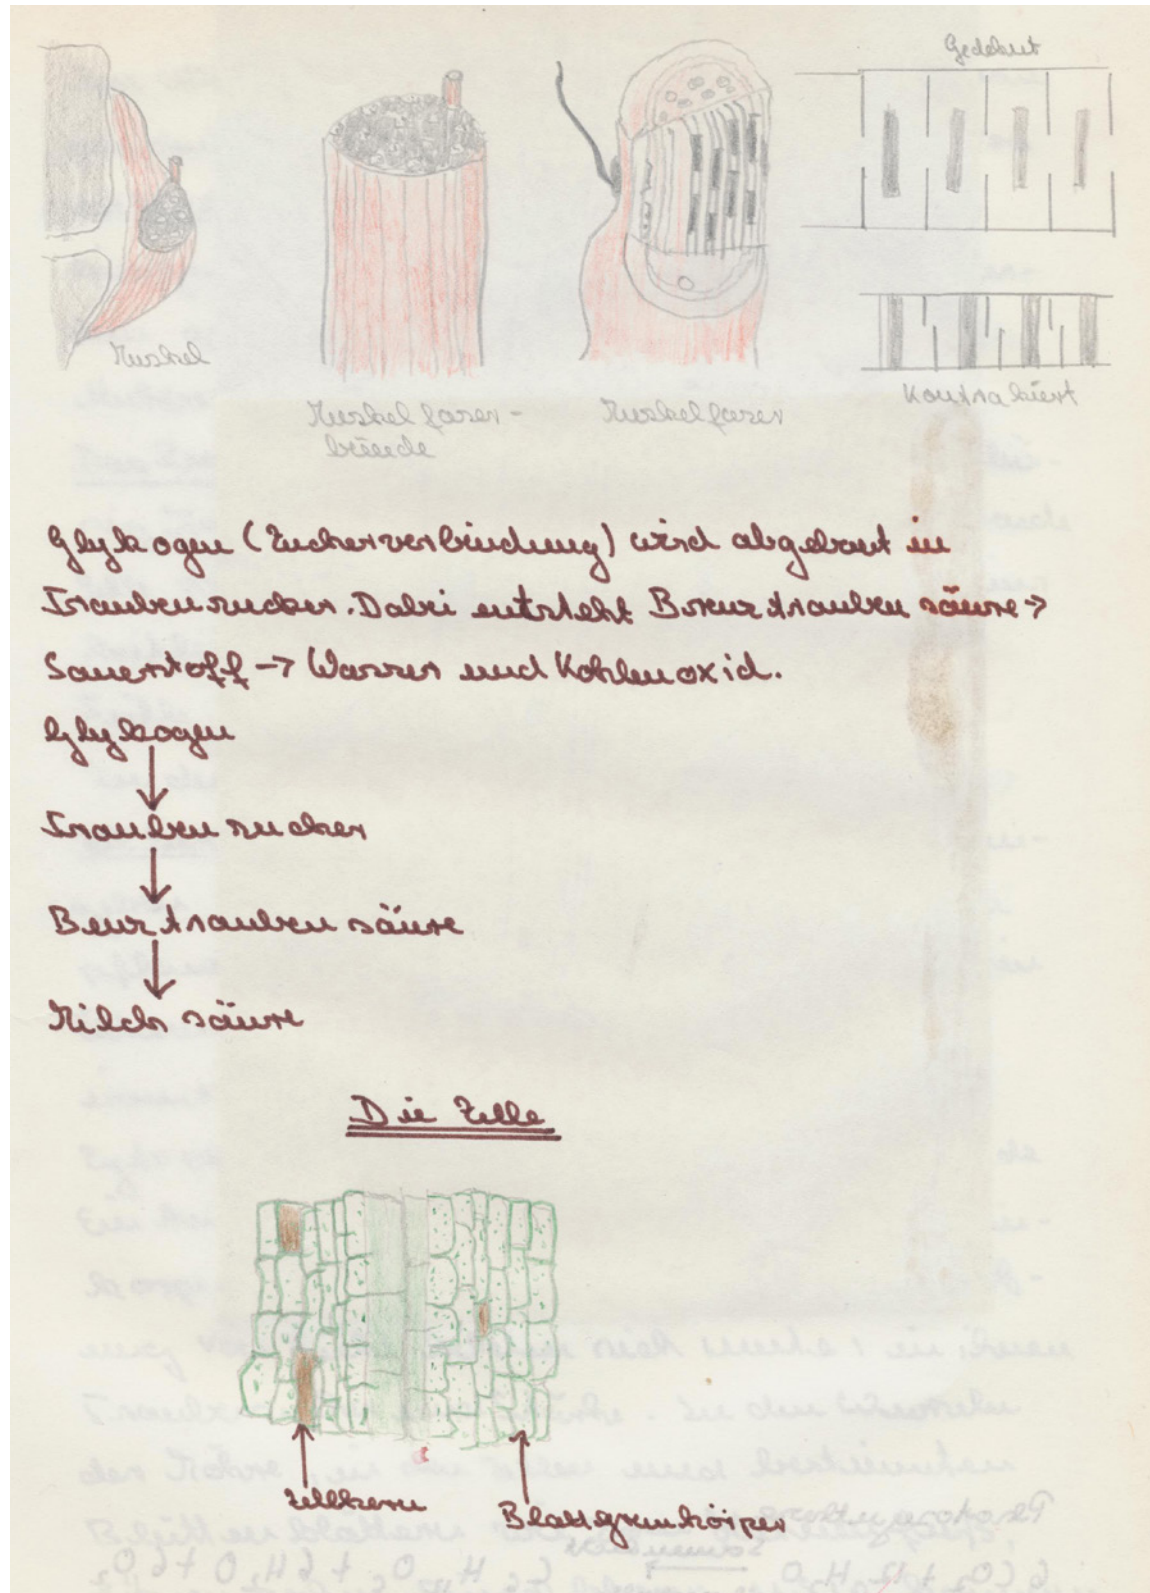 Gedehnt
Muskel
Muskelfaser-
bünde
Muskelfaser
Kontrahiert
Glykogen (Zuckerverbindung) wird abgebaut in
Traubenzucker. Dabei entsteht Brenztraubensäure →
Sauerstoff → Wasser und Kohlenoxid.
Glykogen
↓
Traubenzucker
↓
Benztraubensäure
↓
Milchsäure
Die Zelle
Zellkern
Blattgrünkörper